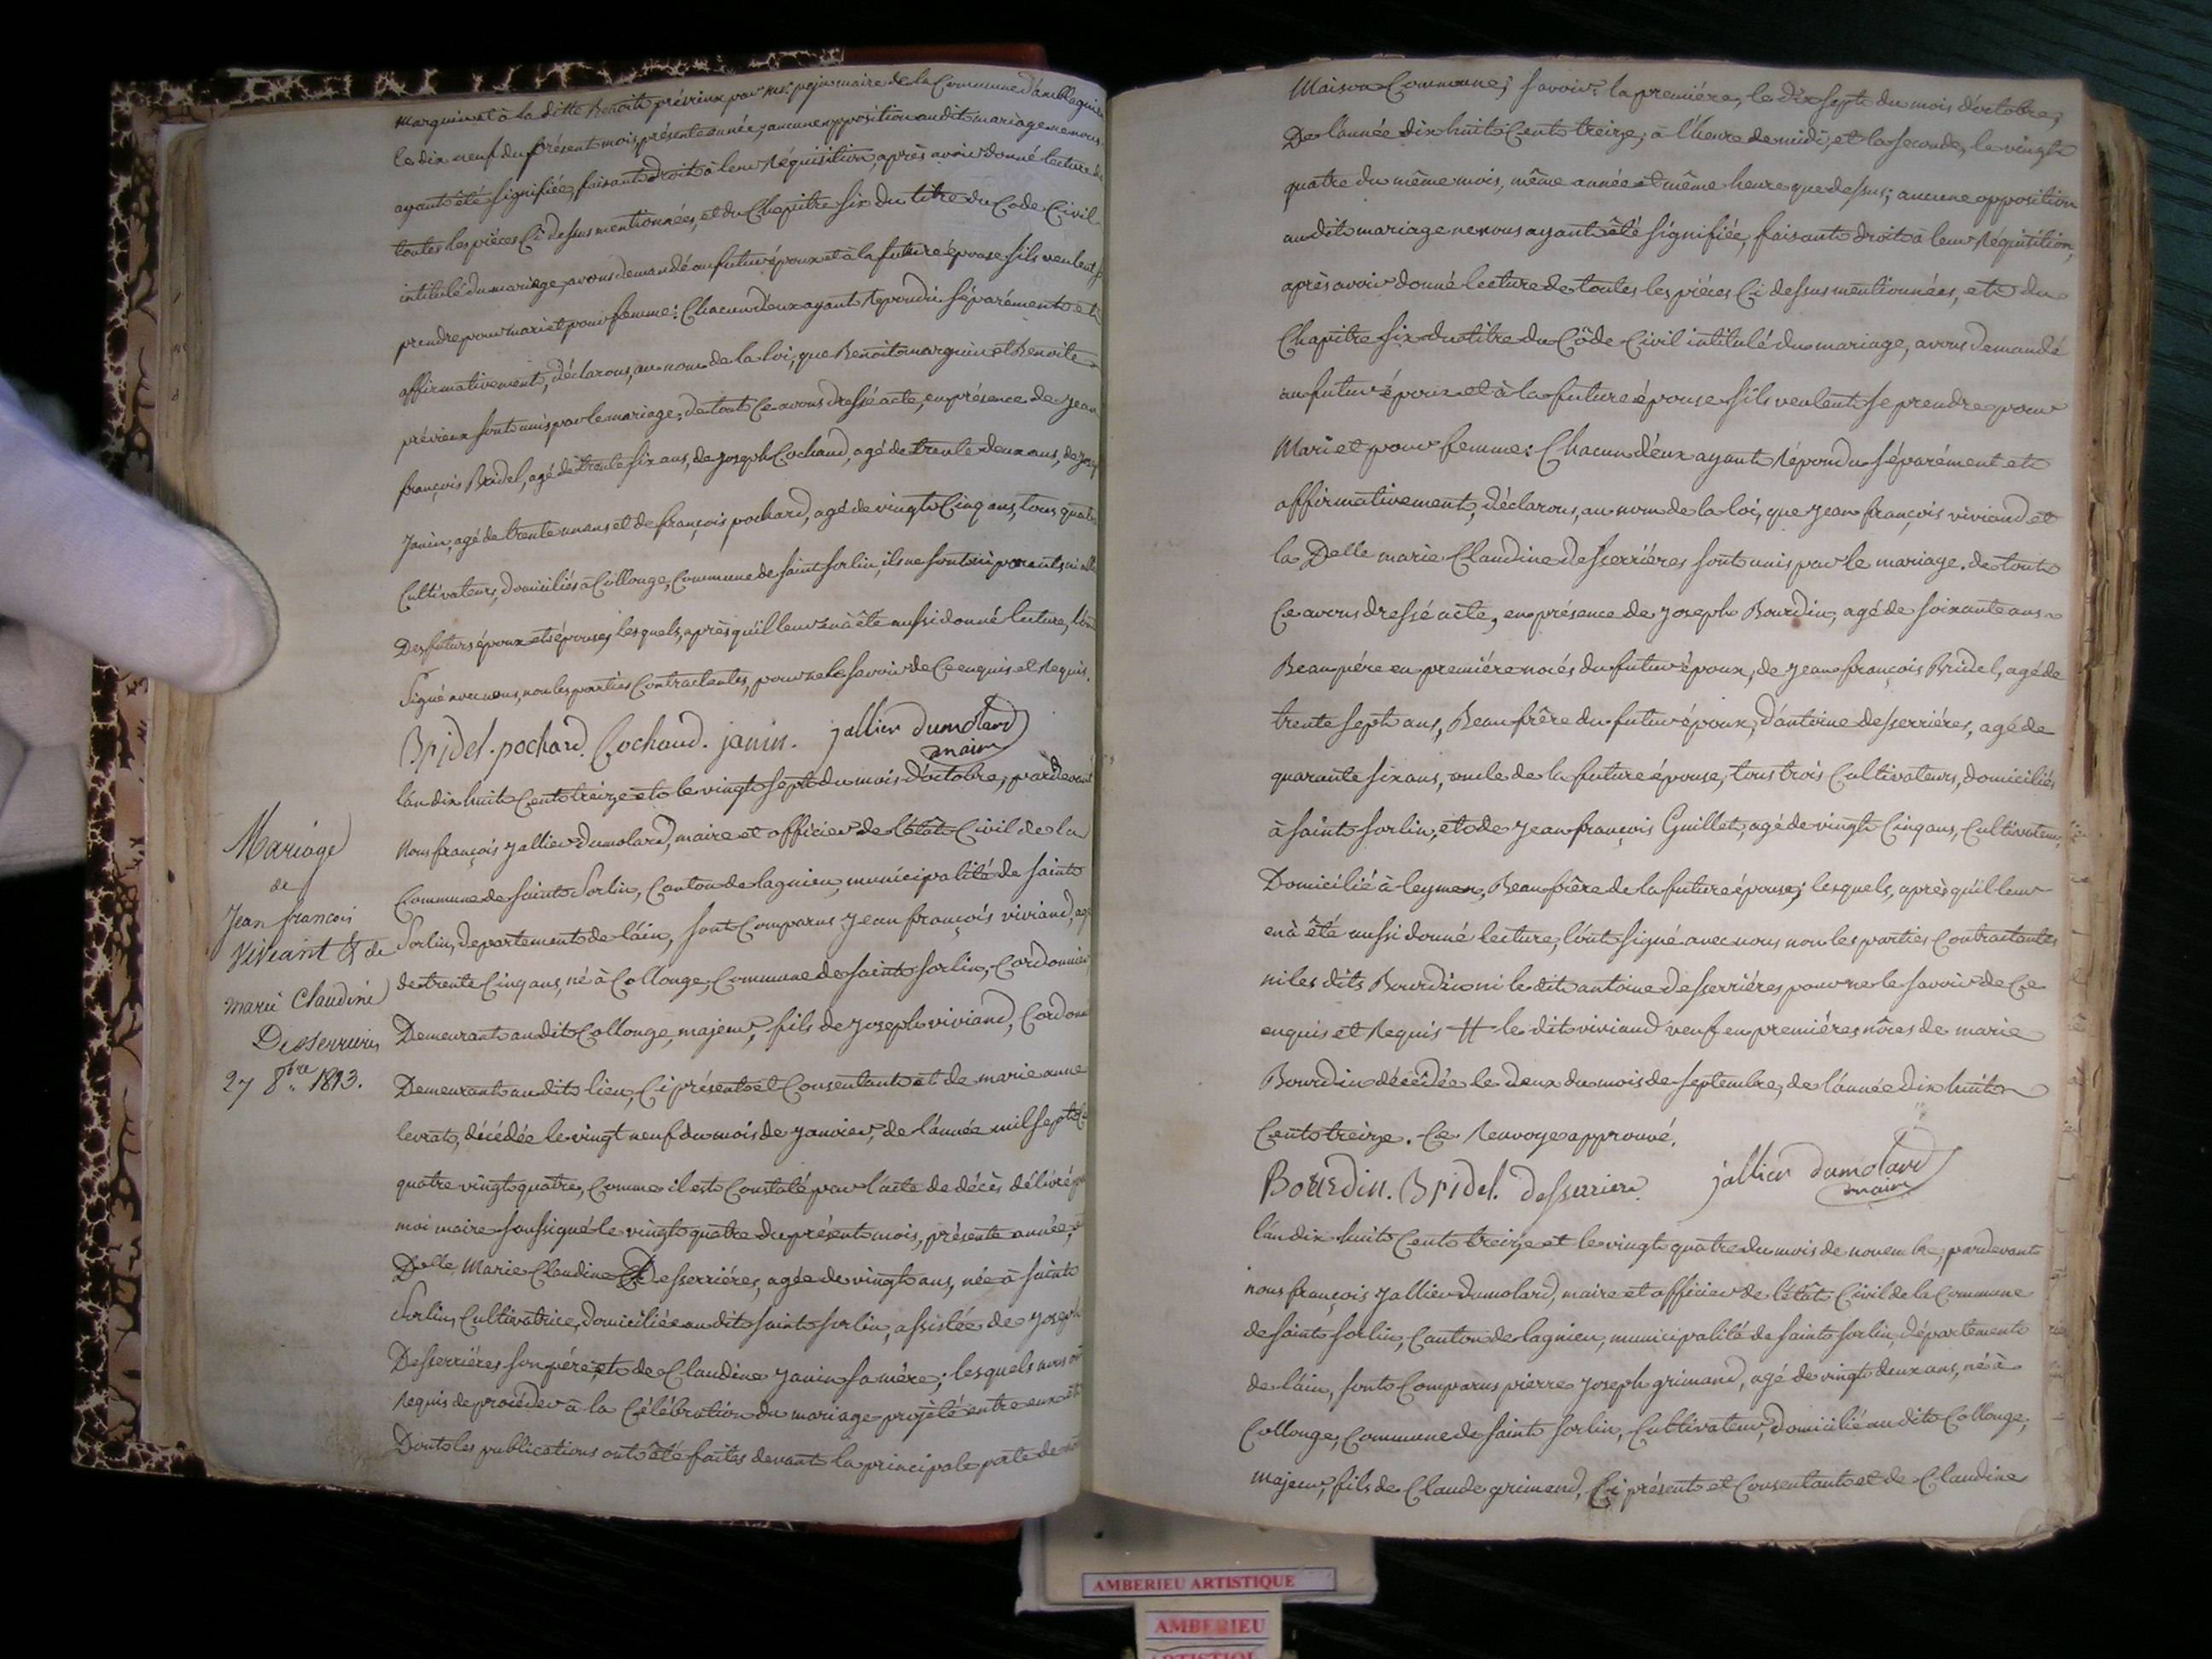 marguin et à la ditte Benoite prévieux par mr. pejon maire de la Commune d'amblagnieu
le dix neuf du présent mois, présente année, aucune opposition audit mariage ne nous
ayant été signifiée, faisant droit à leur réquisition, après avoir donné lecture de
toutes les pièces Ci dessus mentionnées, et du Chapitre six du titre du Code Civil
intitulé du mariage, avons demandé au futur époux et à la future épouse s'ils veulent se
prendre pour mari et pour femme: Chacun d'eux ayant repondu séparément et
affirmativement, déclarons, au nom de la loi, que Benoit marguin et Benoite
prévieux sont unis par le mariage, de tout Ce avons dressé acte, en présence de jean
françois Bridel, agé de trente six ans, de joseph Cochaud, agé de trente deux ans, de
janin, agé de trente un ans et de françois pochard, agé de vingt Cinq ans, tous quatre
Cultivateurs, domiciliés à Collonge, Commune de saint sorlin, ils ne sont ni parents, ni
Des futurs époux et épouse, lesquels, après qu'il leur en à été aussi donné lecture, l'ont
Signé avec nous, non les parties Contractantes, pour ne le savoir de Ce enquis et requis.
Bridel. pochard. Cochaud. janin. jallier dumolard
maire
l'an dix huit Cent treize et le vingt sept du mois d'octobre, pardevant
Nous françois jallier dumolard, maire et officier de l'état Civil de la
Commune de saint Sorlin, Canton de lagnieu, municipalité de saint
Sorlin, departement de l'ain, sont Comparus jean françois viviand, agé
de trente Cinq ans, né à Collonge, Commune de saint sorlin, Cordonnier
Demeurant au dit Collonge, majeur, fils de joseph viviand, Cordon
Demeurant au dit lieu, Ci présent et Consentant et de marie anne
levrat, décédée le vingt neuf du mois de janvier, de l'année mil sept
quatre vingt quatre, Comme il est Constaté par l'acte de décès délivré
moi maire soussigné le vingt quatre du présent mois, présente année,
Delle Marie Claudine Desserriéres, agée de vingt ans, née à saint
Sorlin, Cultivatrice, domiciliée au dit saint sorlin, assistée de joseph
Desserriéres son pére et de Claudine janin sa mère; lesquels nous
requis de procéder à la Célébration du mariage projété entre eux et
Dont les publications ont été faites devant la principale porte de
Mariage
de
Jean francois
Viviant & de
marie Claudine
Desserrieres
27 8bre 1813.
Maison Commune; savoir: la première, le dix sept du mois d'octobre,
De l'année dix huit Cent treize, à l'heure de midi, et la seconde, le vingt
quatre du même mois, même année et même heure que dessus; aucune opposition
audit mariage ne nous ayant été signifiée, faisant droit à leur réquisition,
après avoir donné lecture de toutes les pièces Ci dessus mentionnées, et du
Chapitre six du titre du Côde Civil intitulé du mariage, avons demandé
au futur époux et à la future épouse s'ils veulent se prendre pour
Mari et pour femme: Chacun d'eux ayant répondu séparément et
affirmativement, déclarons, au nom de la loi, que jean françois viviand et
la Delle marie Claudine desserriéres sont unis par le mariage. de tout
Ce avons dressé acte, en présence de joseph Bourdin, agé de soixante ans
Beau pére en première nocés du futur époux, de jean françois Bridel, agé de
trente sept ans, Beau frêre du futur époux, d'antoine desserriéres, agé de
quarante six ans, oncle de la future épouse, tous trois Cultivateurs, domiciliés
à saint sorlin, et de jean françois Guillet, agé de vingt Cinq ans, Cultivateur,
Domicilié à leyment, Beau frère de la future épouse; lesquels, après qu'il leur
en à été aussi donné lecture, l'ont signé avec nous non les parties Contractantes
ni les dits Bourdin ni le dit antoine desserriéres pour ne le savoir de Ce
enquis et requis # le dit viviand veuf en premières nôces de marie
Bourdin décédée le deux du mois de septembre, de l'année dix huit
Cent treize. Ce renvoye approuvé.
Bourdin. Bridel. desserriere jallier dumolard
maire
l'an dix huit Cent treize et le vingt quatre du mois de novembre, pardevant
nous françois jallier dumolard, maire et officier de l'état Civil de la Commune
de saint sorlin, Canton de lagnieu, municipalité de saint sorlin, département
de l'ain, sont Comparus pierre joseph grimand, agé de vingt deux ans, né à
Collonge, Commune de saint sorlin, Cultivateur, domicilié au dit Collonge,
majeur, fils de Claude grimand, Ci présent et Consentant et de Claudine
AMBERIEU ARTISTIQUE
AMBERIEU
ARTISTIQUE